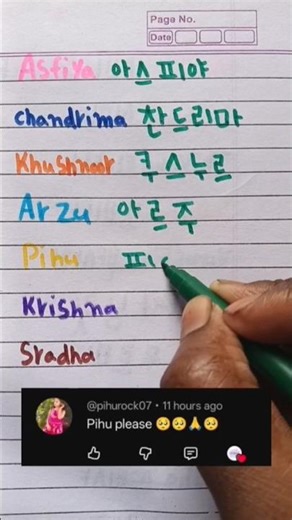 Page No.
Date
Asfiya 아스피야
chandrima 찬드리마
Khushnoor 쿠스누르
Arzu 아르주
Pihu 피
Krishna
Sradha
@pihurock07 • 11 hours ago
Pihu please 🥺🥺🙏🥺